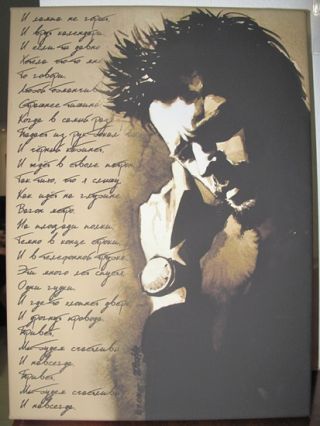 И лампа не горит
И врут календари
И если ты давно
Хотела что-то мне
То говори.
Любой обманчив
Страшнее тишина
Когда в самый
Падает из рук бокал
И чёрный кабинет
И ждёт в стволе патрон
Так тихо, что я слышу
Как идёт на глубине
Вагон метро.
На площади полки
Темно в конце строки
И в телефонной трубке
Эти много лет спустя
Одни гудки
И где-то хлопнет дверь
И дрогнут провода
Привет,
Мы будем счастливы
И навсегда
Привет,
Мы будем счастливы
И навсегда